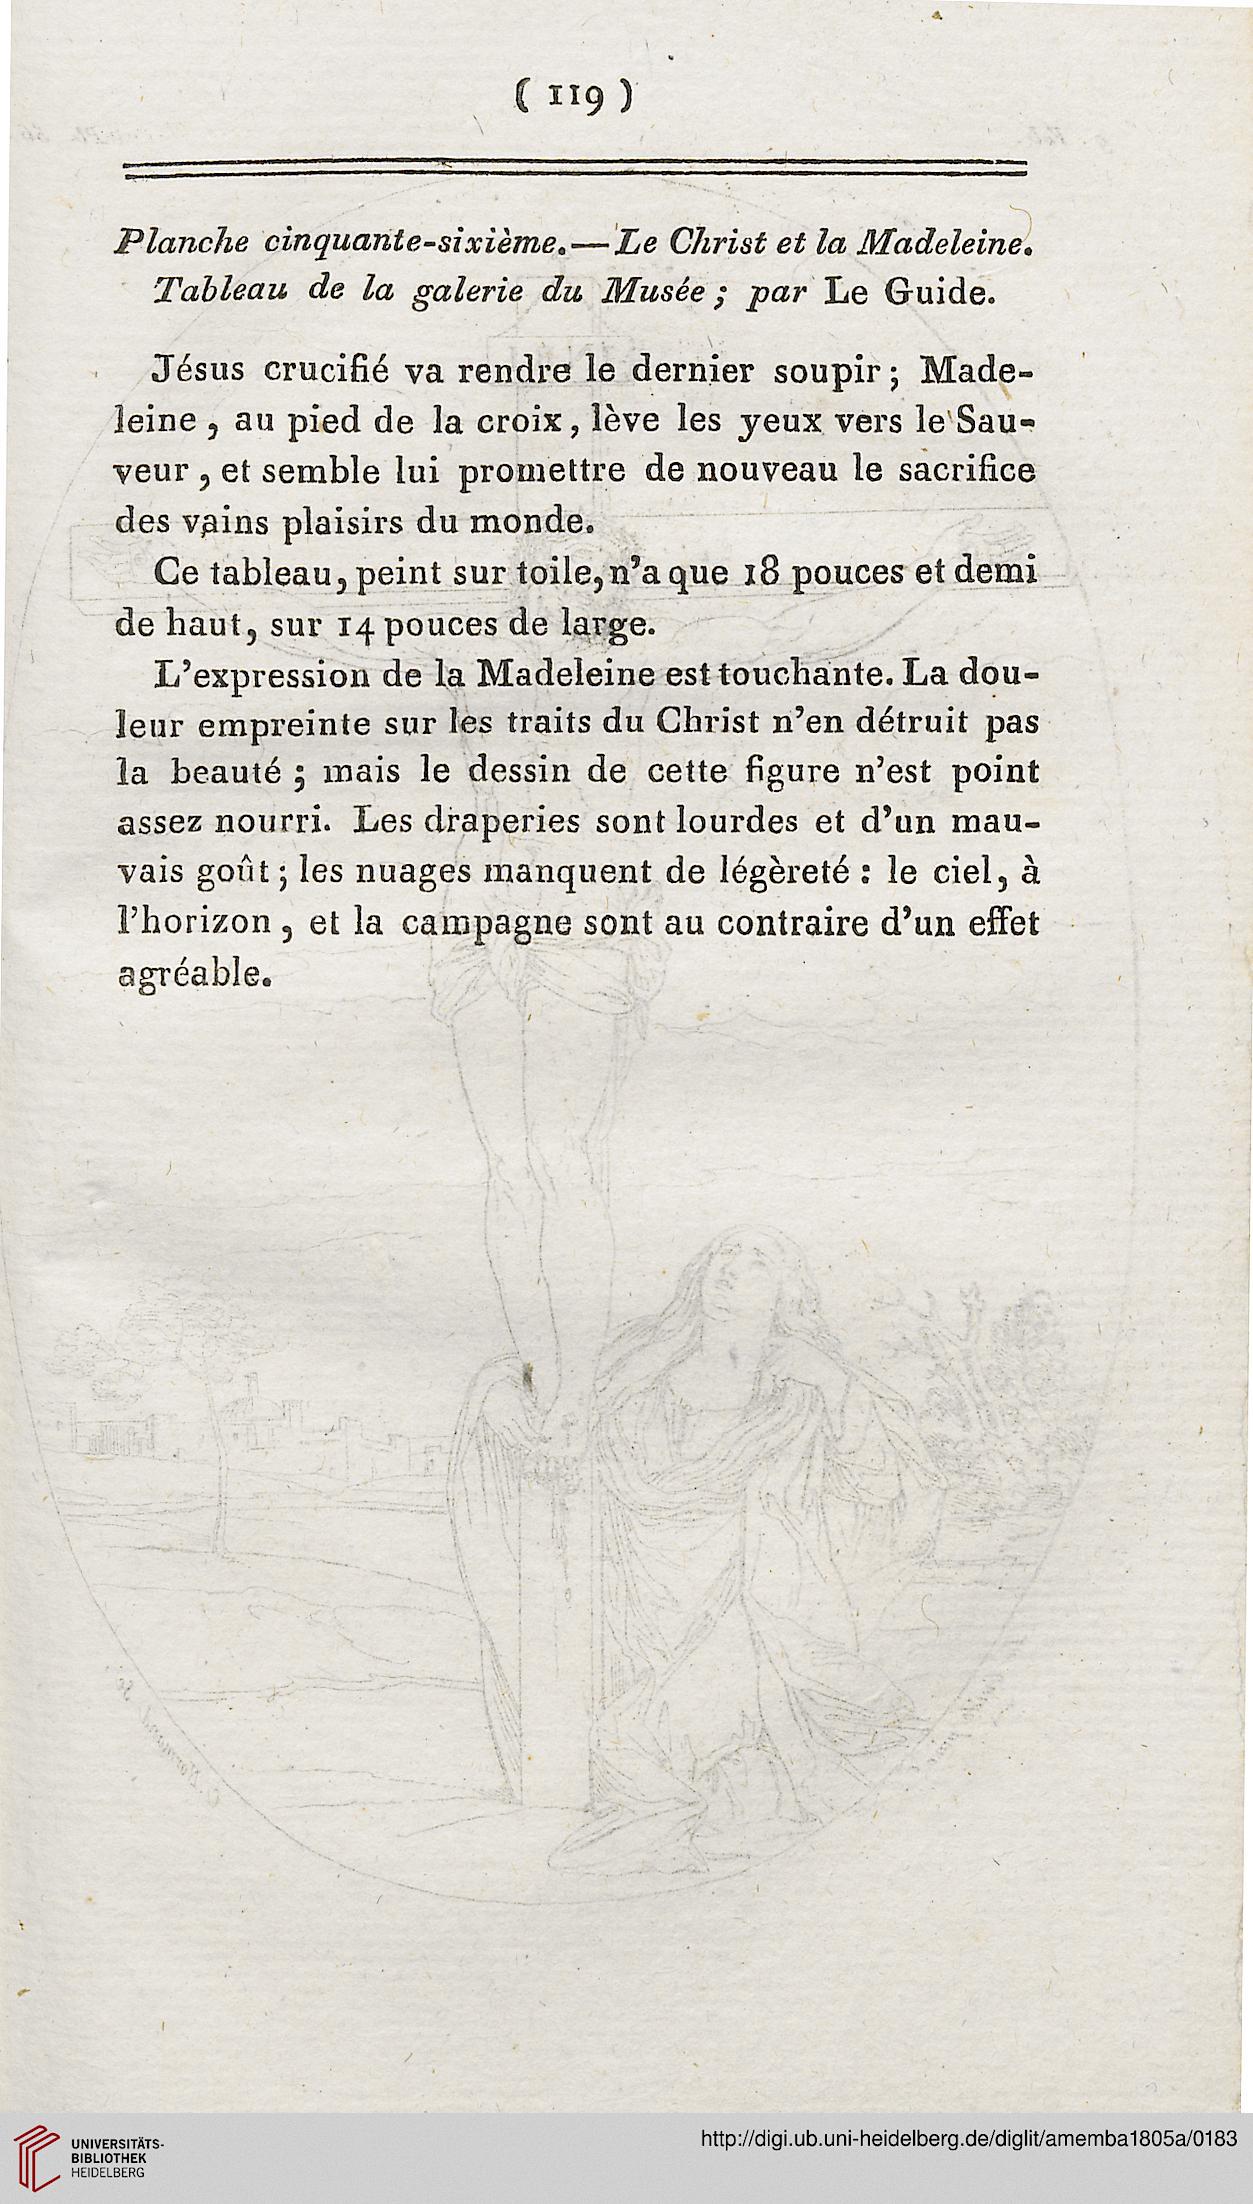 ( 119 )
Planche cinquante-sixième.—Le Christ et la Madeleine.
Tableau de la galerie du Musée ; par Le Guide.
Jésus crucifié va rendre le dernier soupir ; Made-
leine , au pied de la croix , lève les yeux vers le Sau-
veur , et semble lui promettre de nouveau le sacrifice
des vains plaisirs du monde.
Ce tableau, peint sur toile, n'a que 18 pouces et demi
de haut, sur 14 pouces de large.
L'expression de la Madeleine est touchante. La dou-
leur empreinte sur les traits du Christ n'en détruit pas
la beauté ; mais le dessin de cette figure n'est point
assez nourri. Les draperies sont lourdes et d'un mau-
vais goût ; les nuages manquent de légèreté : le ciel, à
l'horizon , et la campagne sont au contraire d'un effet
agréable.
UNIVERSITÄTS-
BIBLIOTHEK
HEIDELBERG
http://digi.ub.uni-heidelberg.de/diglit/amemba1805a/0183